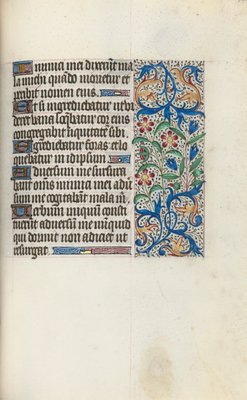 Inimici mei dixerunt ma
la michi quando morietur et
peribit nomen eius.
Et si ingrediebatur ut vi
deret vana loquebatur cor eius
congregavit iniquitatem sibi.
Egrediebatur foras et lo
quebatur in idipsum
Adversum me susurra
bant omnes inimici mei adv
sum me cogitabant mala m
Verbum iniquum consti
tuerunt adversum me nunquid
qui dormit non adiciet ut
resurgat